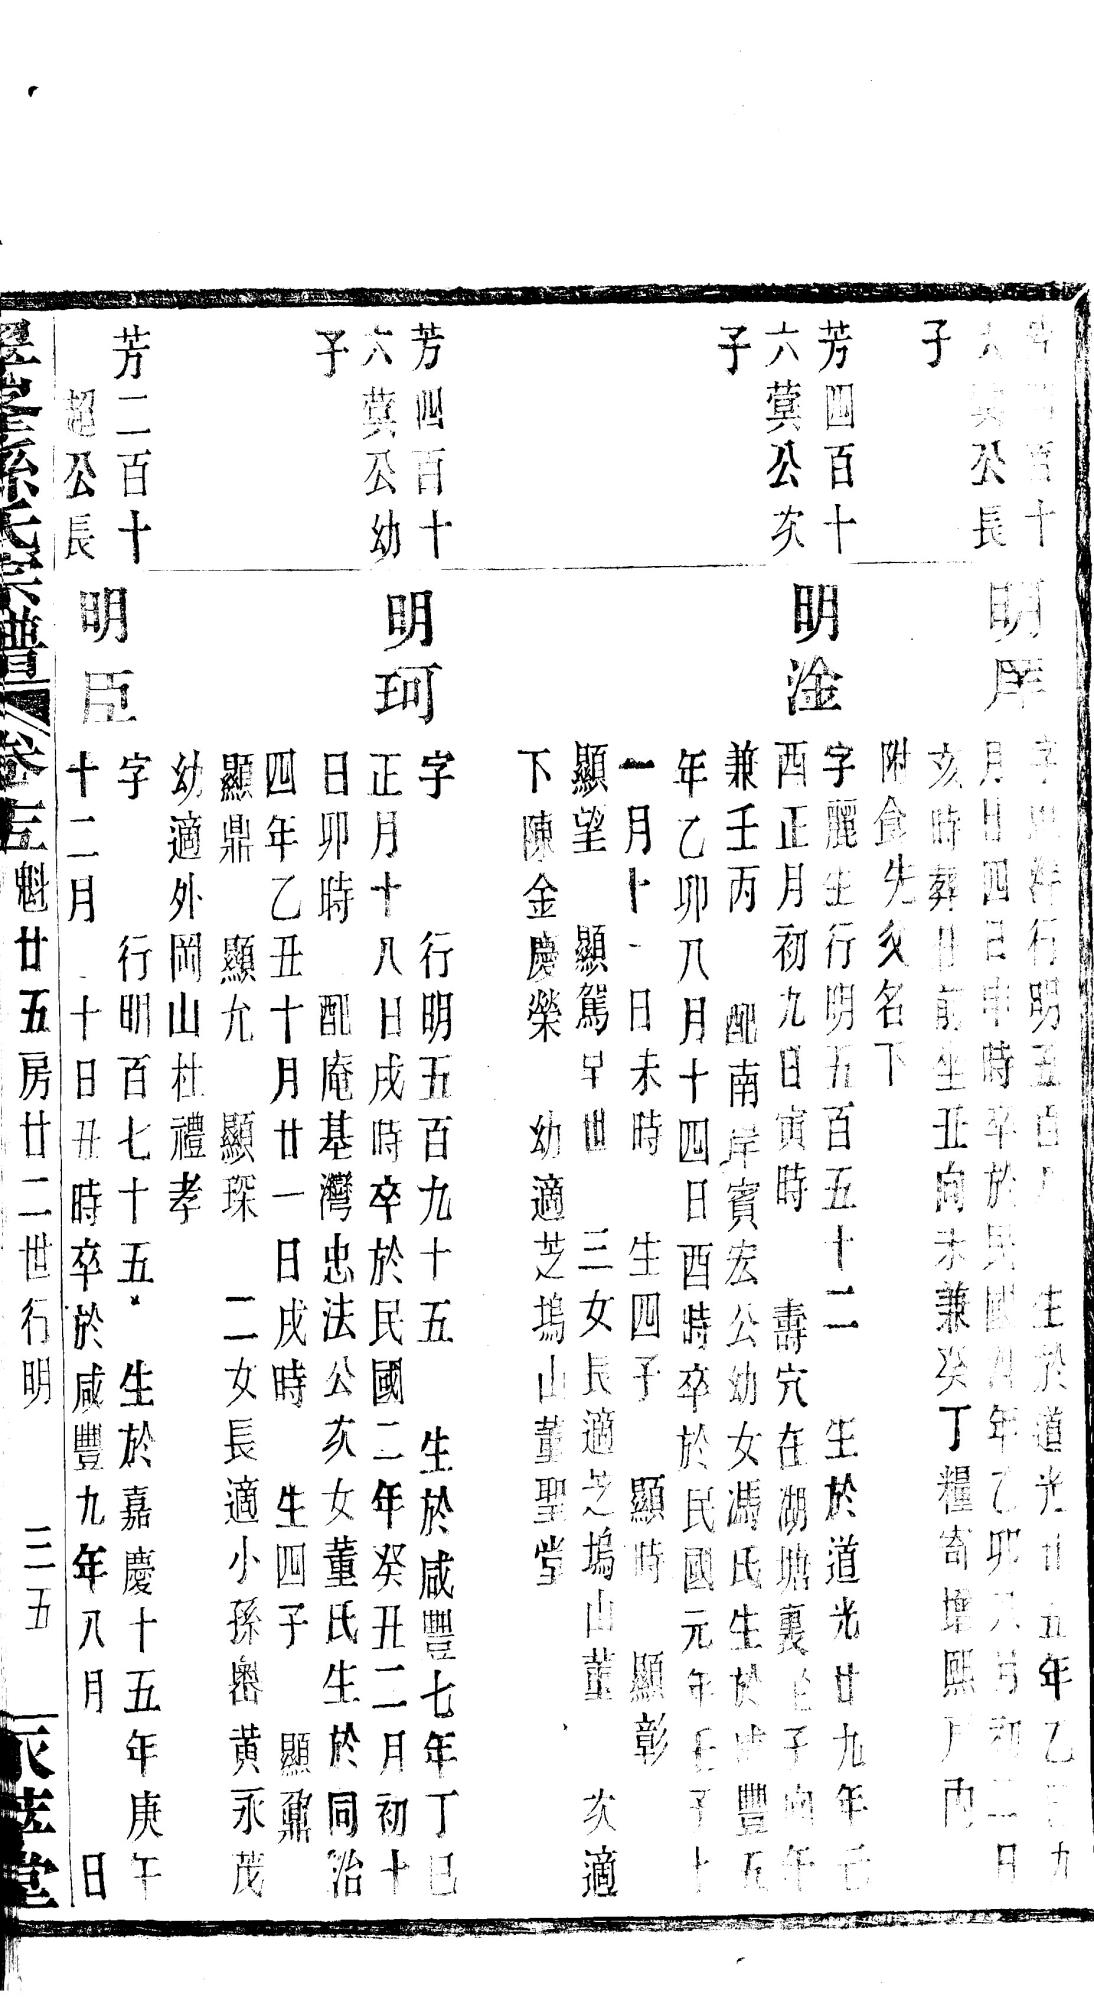 百十
公長
子
明
字 行明五百 生於道光廿五年乙巳九
月廿四日申時卒於民國四年乙卯八月初二日
亥時葬 前坐丑向未兼癸丁糧寄增熙戶內
附食先父名下
芳四百十
六蓂公次
子
明淦
字麗生行明五百五十二 生於道光廿九年己
酉正月初九日寅時 壽穴在湖塘裏 子向午
兼壬丙 配南岸賓宏公幼女馮氏生於咸豐五
年乙卯八月十四日酉時卒於民國元年壬子十
一月十一日未時 生四子 顯時 顯彰
顯望 顯駕早世 三女長適芝塢山董 次適
下陳金慶榮 幼適芝塢山董聖堂
芳四百十
六蓂公幼
子
明珂
字 行明五百九十五 生於咸豐七年丁巳
正月十八日戌時卒於民國二年癸丑二月初十
日卯時 配庵基灣忠法公次女董氏生於同治
四年乙丑十月廿一日戌時 生四子 顯鼐
顯鼎 顯允 顯琛 二女長適小孫嶴黃永茂
幼適外岡山杜禮孝
芳二百十
超公長
明臣
字 行明百七十五 生於嘉慶十五年庚午
十二月 十日丑時卒於咸豐九年八月 日
孫氏宗譜 卷 魁廿五房廿二世行明 三五 堂